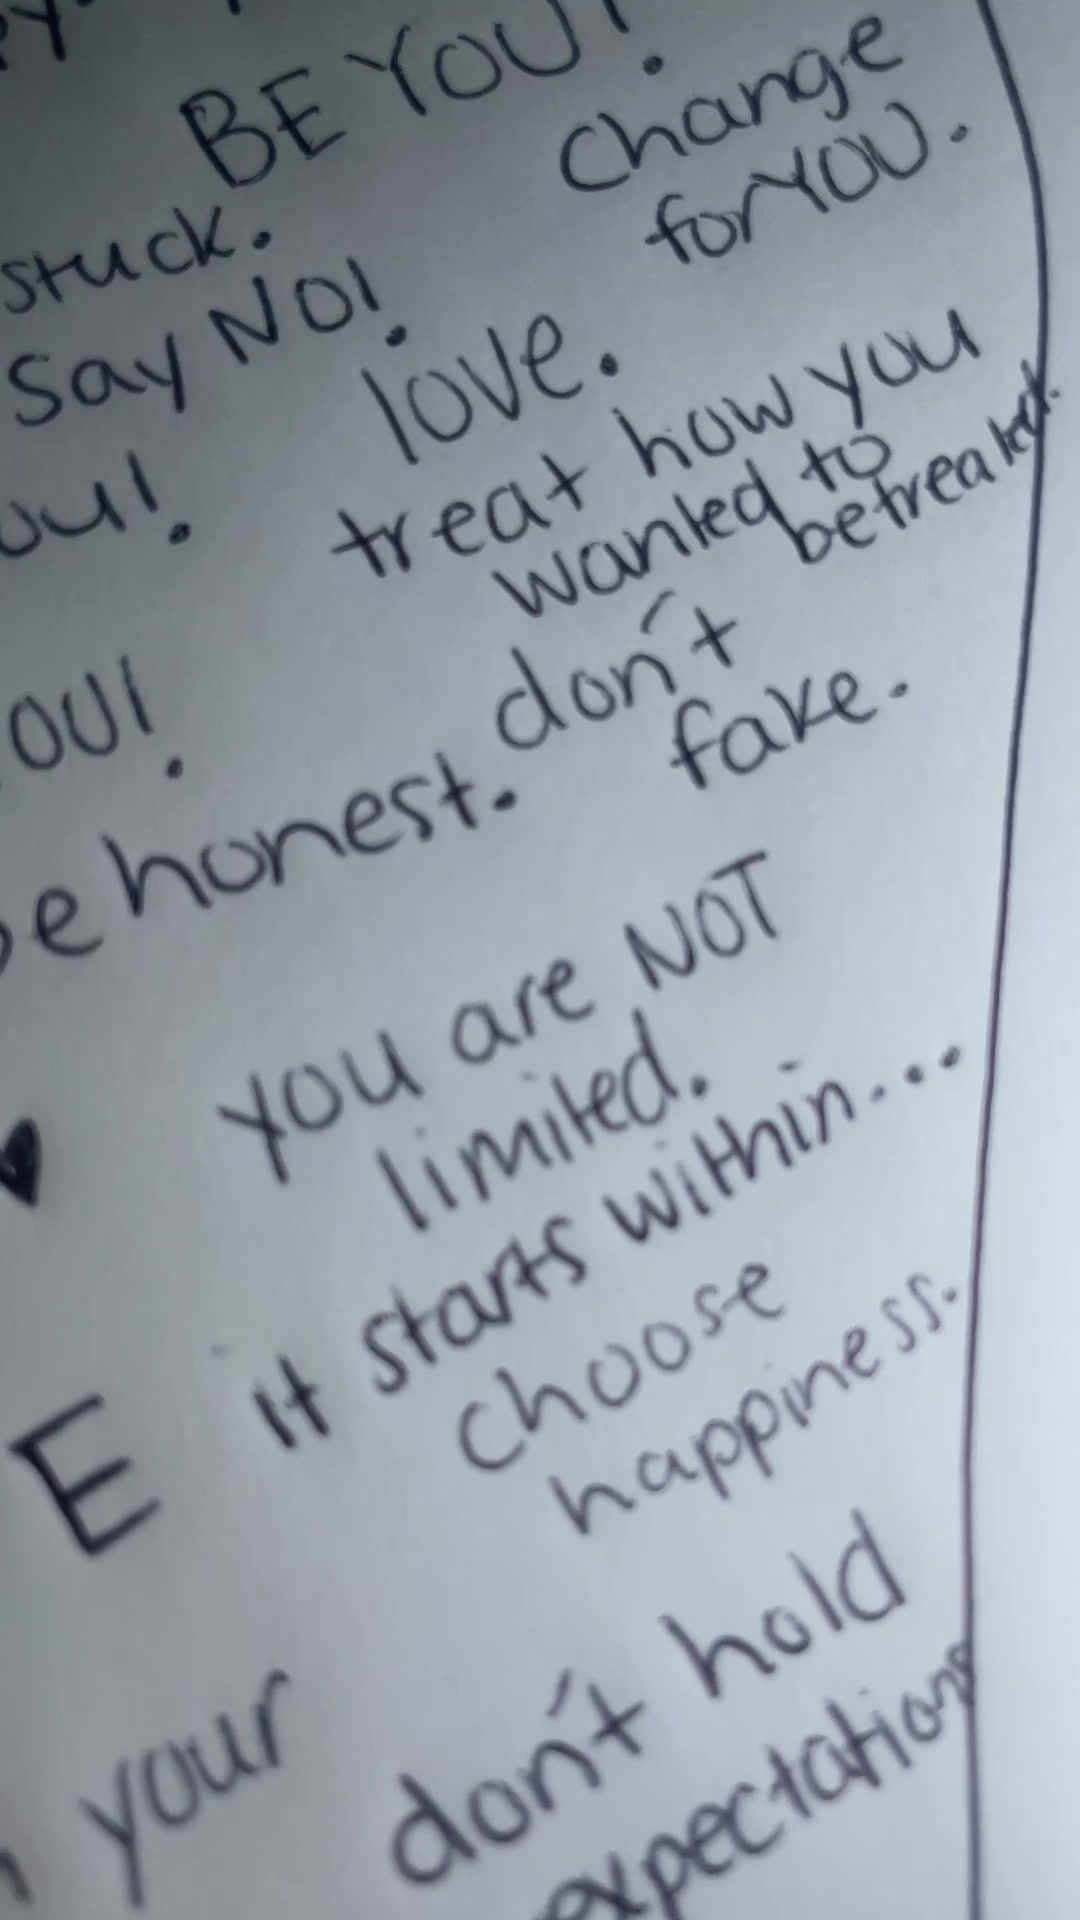 BE YOU!
change
for YOU.
stuck.
Say NO!
love.
treat how you
wanted to
be treated.
don't
fake.
be honest.
you are NOT
limited.
it starts within...
choose
happiness.
E
your
don't hold
expectations